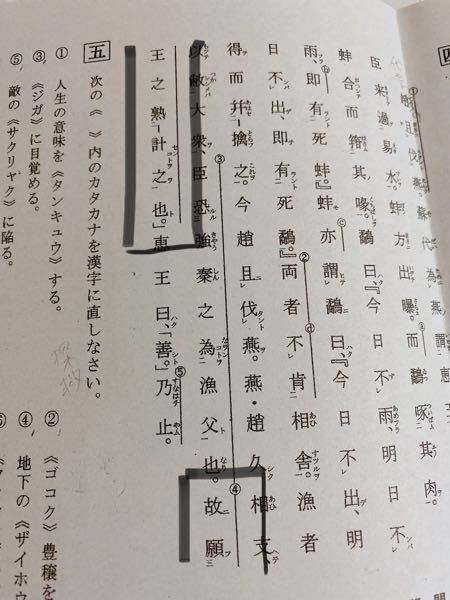 趙且伐燕。蘇代為燕謂恵
臣来過易水。蚌方出曝。而鷸啄其肉。
蚌合而箝其喙。鷸曰、『今日不雨、明日不
雨、即有死蚌。』蚌亦謂鷸曰、『今日不出、明
日不出、即有死鷸。』両者不肯相舎。漁者
得而幷擒之。今趙且伐燕。燕・趙久相支
以敝大衆、臣恐強秦之為漁父也。故願
王之熟計之也。」恵王曰、「善。」乃止。
五 次の《 》内のカタカナを漢字に直しなさい。
① 人生の意味を《タンキュウ》する。
② 《ゴコク》豊穣を
③ 《ジガ》に目覚める。
④ 地下の《ザイホウ
⑤ 敵の《サクリャク》に陥る。